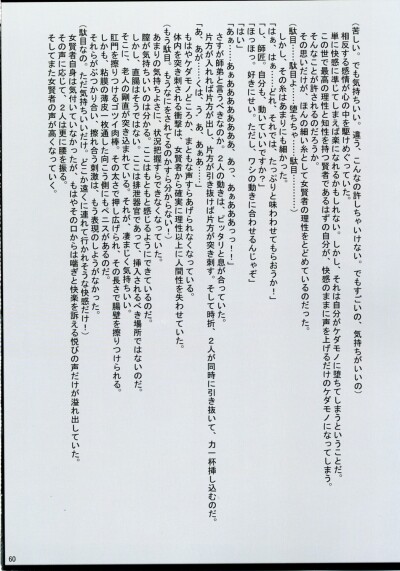 (苦しい。でも気持ちいい。違う、こんなの許しちゃいけない。でもすごいの、気持ちがいいの)
相反する感情が心の中を駆けめぐっていた。
単に快感に準じてしまえば楽になれるかもしれない。しかし、それは自分がケダモノに堕ちてしまうということだ。
この世で最高の理性と知性を持つ賢者であるはずの自分が、快感のままに声を上げるだけのケダモノになってしまう。
そんなことが許されるのだろうか。
その思いだけが、ほんの細い糸として女賢者の理性をとどめているのだ。
(駄目……駄目よ……堕ちちゃ……駄目……)
しかし、その糸はあまりにも細かった。
「はぁ、はぁ……どれ、それでは、たっぷりと味わわせてもらおうか！」
「し、師匠。自分も、動いていいですか？」
「ほっほっ。好きにせい。ただし、ワシの動きに合わせるんじゃぞ」
「はい」
「あぁ……あぁああああああああ、あっ、あぁあああっっ！！」
「あ、あが……は、う、あ、あぁああ……」
さすが師弟と言うべきなのか。２人の動きは、ピッタリと息が合っていた。
片方が入れれば片方が出し、片方が引き抜けば片方が突き刺す。そして時折、２人が同時に引き抜いて、力一杯挿し込むのだ。
もはやケダモノどころか、まともな声すらあげられなくなっている。
体内を突き刺される衝撃は、女賢者から確実に理性以上に人間性を失わせていた。
(もう駄目。もうなにをされてるのかすらわからない！)
あまりの気持ちよさに、状況把握すらできなくなっていた。
膣が気持ちいいのは分かる。ここはもともと感じるようにできているのだ。
しかし、直腸はそうではない。ここは排泄器官であって、挿入されるべき場所ではないのだ。
そこに、老人の剛直が突き込まれている。そしてそれが、凄まじく気持ちいい。
肛門を擦りつけるゴツイ肉棒。その太さで押し広げられ、その長さで腸壁を擦りつけられる。
しかも、粘膜の薄皮一枚通した向こう側にもペニスがあるのだ。
それらがぶつかり合い、擦れ合う刺激は、もう表現のしようがなかった。
(駄目なの、ただ気持ちいいだけ。どこか遠くに連れて行かれそうな快感だけ！)
女賢者自身は気付いていなかったが、もはやその口からは喘ぎと快楽を訴える悦びの声だけが溢れ出していた。
その声に応じて、２人は更に腰を振る。
そしてまた女賢者の声が高くなっていく。
60